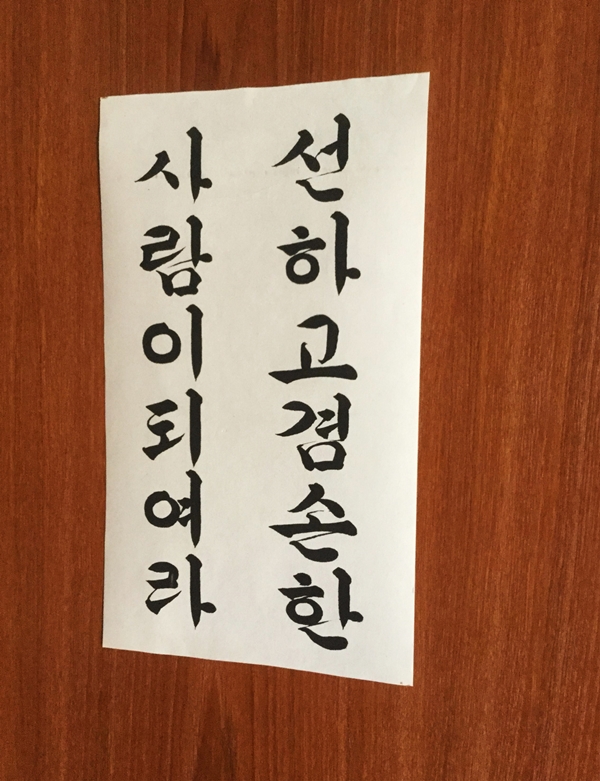 선하고겸손한
사람이되여라